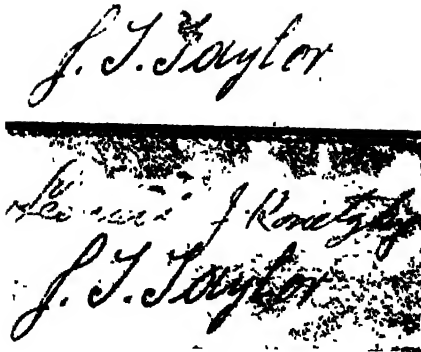 J. T. Taylor
J. Konetzky
J. T. Taylor